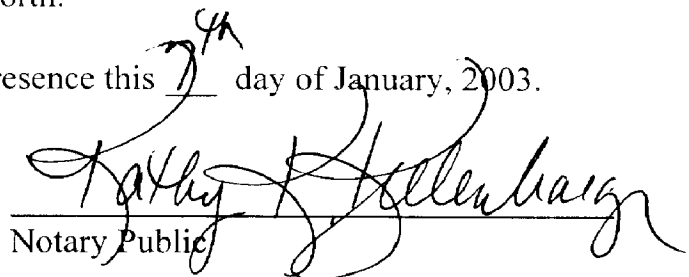 orth.
resence this 7th day of January, 2003.
Kathy K.
Notary Public